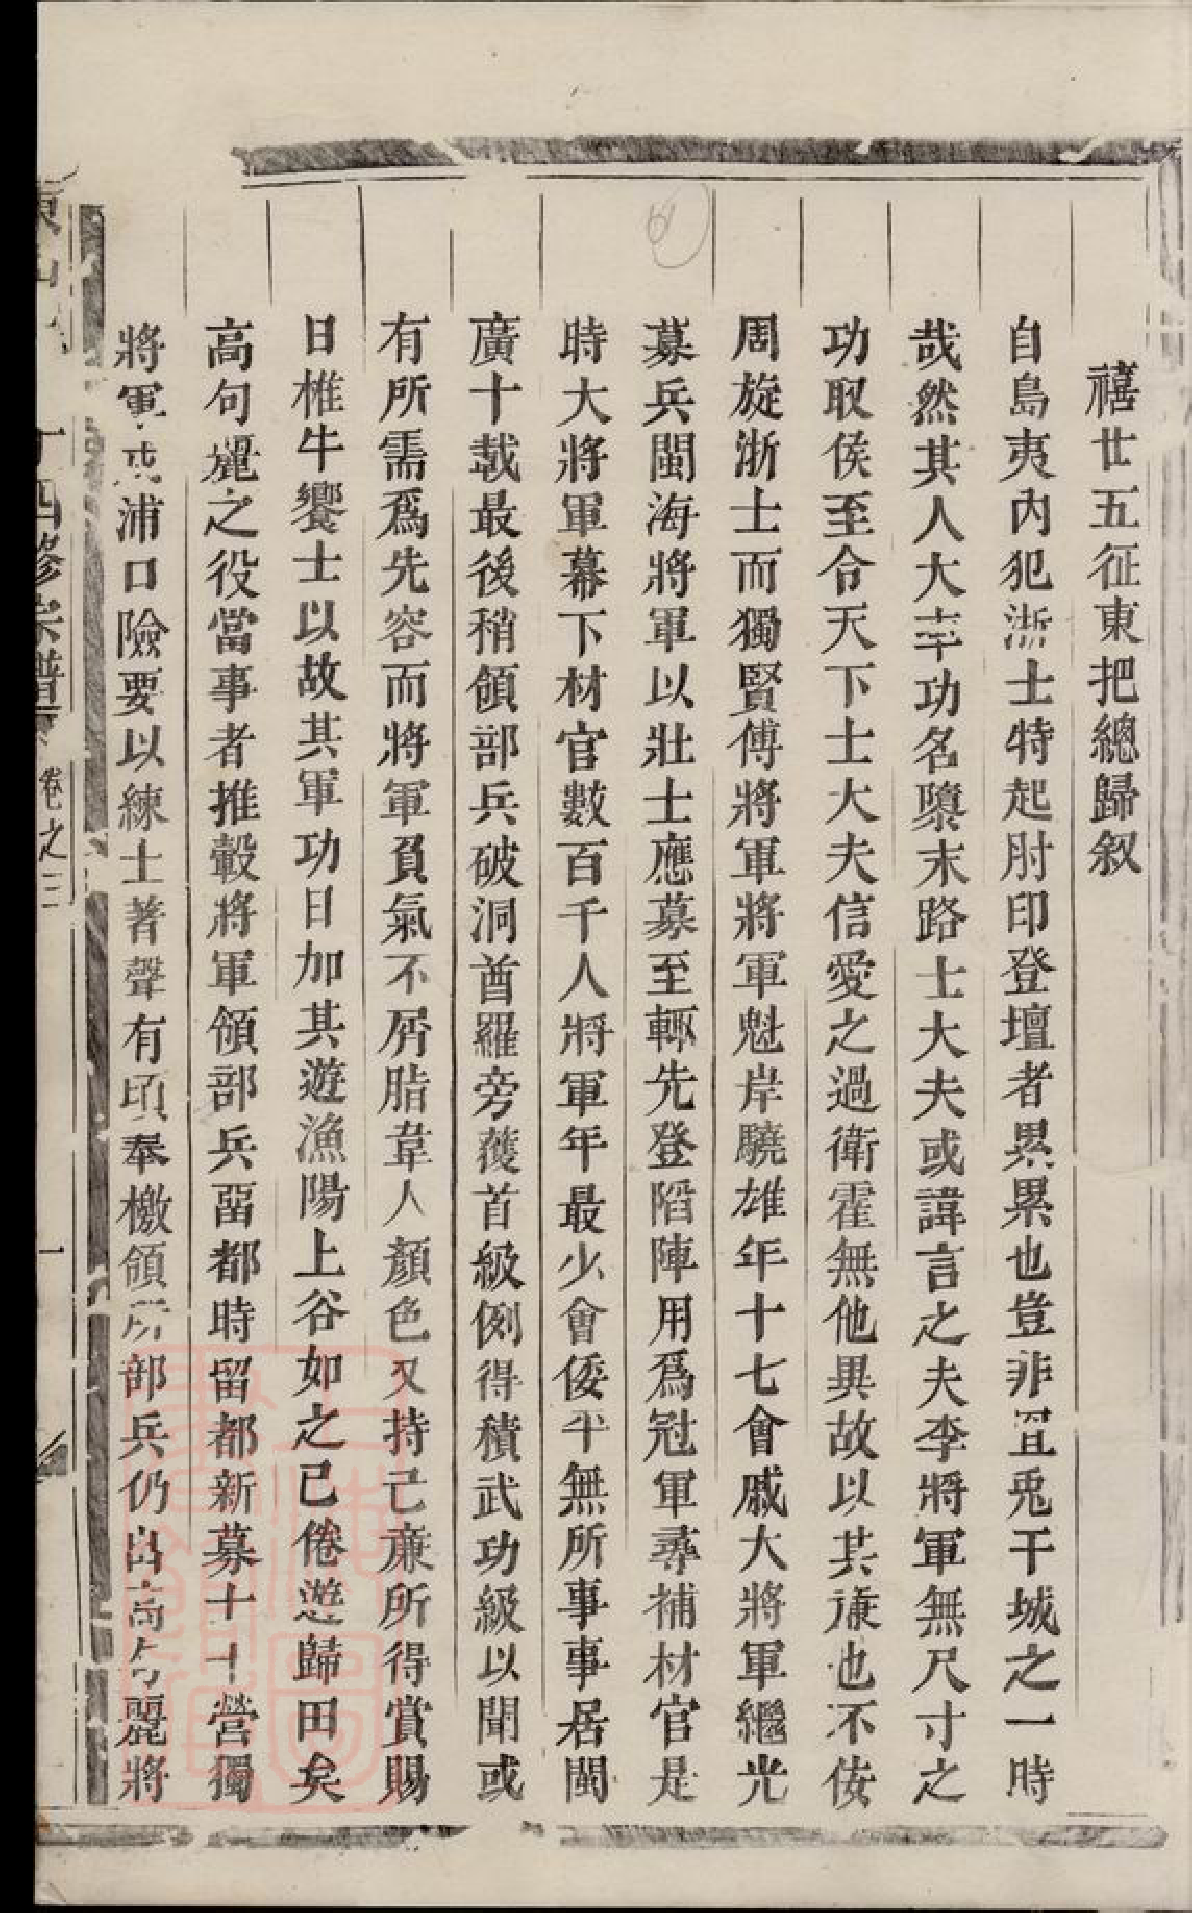 禧廿五征東把總歸叙
自島夷內犯浙士特起肘印登壇者累累也豈非罝兎干城之一時
哉然其人大率功名隳末路士大夫或諱言之夫李將軍無尺寸之
功取侯至合天下士大夫信愛之過衛霍無他異故以其廉也不佞
周旋浙士而獨賢傅將軍將軍魁岸驍雄年十七會戚大將軍繼光
募兵閩海將軍以壯士應募至輒先登陷陣用爲冠軍尋補材官是
時大將軍幕下材官數百千人將軍年最少會倭平無所事事居閩
廣十載最後稍領部兵破洞酋羅旁蔆首級例得積武功級以聞或
有所需爲先容而將軍負氣不屑脂韋人顏色又持己廉所得賞賜
日椎牛饗士以故其軍功日加其遊漁陽上谷如之已倦遊歸田矣
高句麗之役當事者推轂將軍領部兵畱都時留都新募十十營獨
將軍戍浦口險要以練士著聲有頃奉檄領所部兵仍出高句麗將
十四修宗譜
卷之三
一